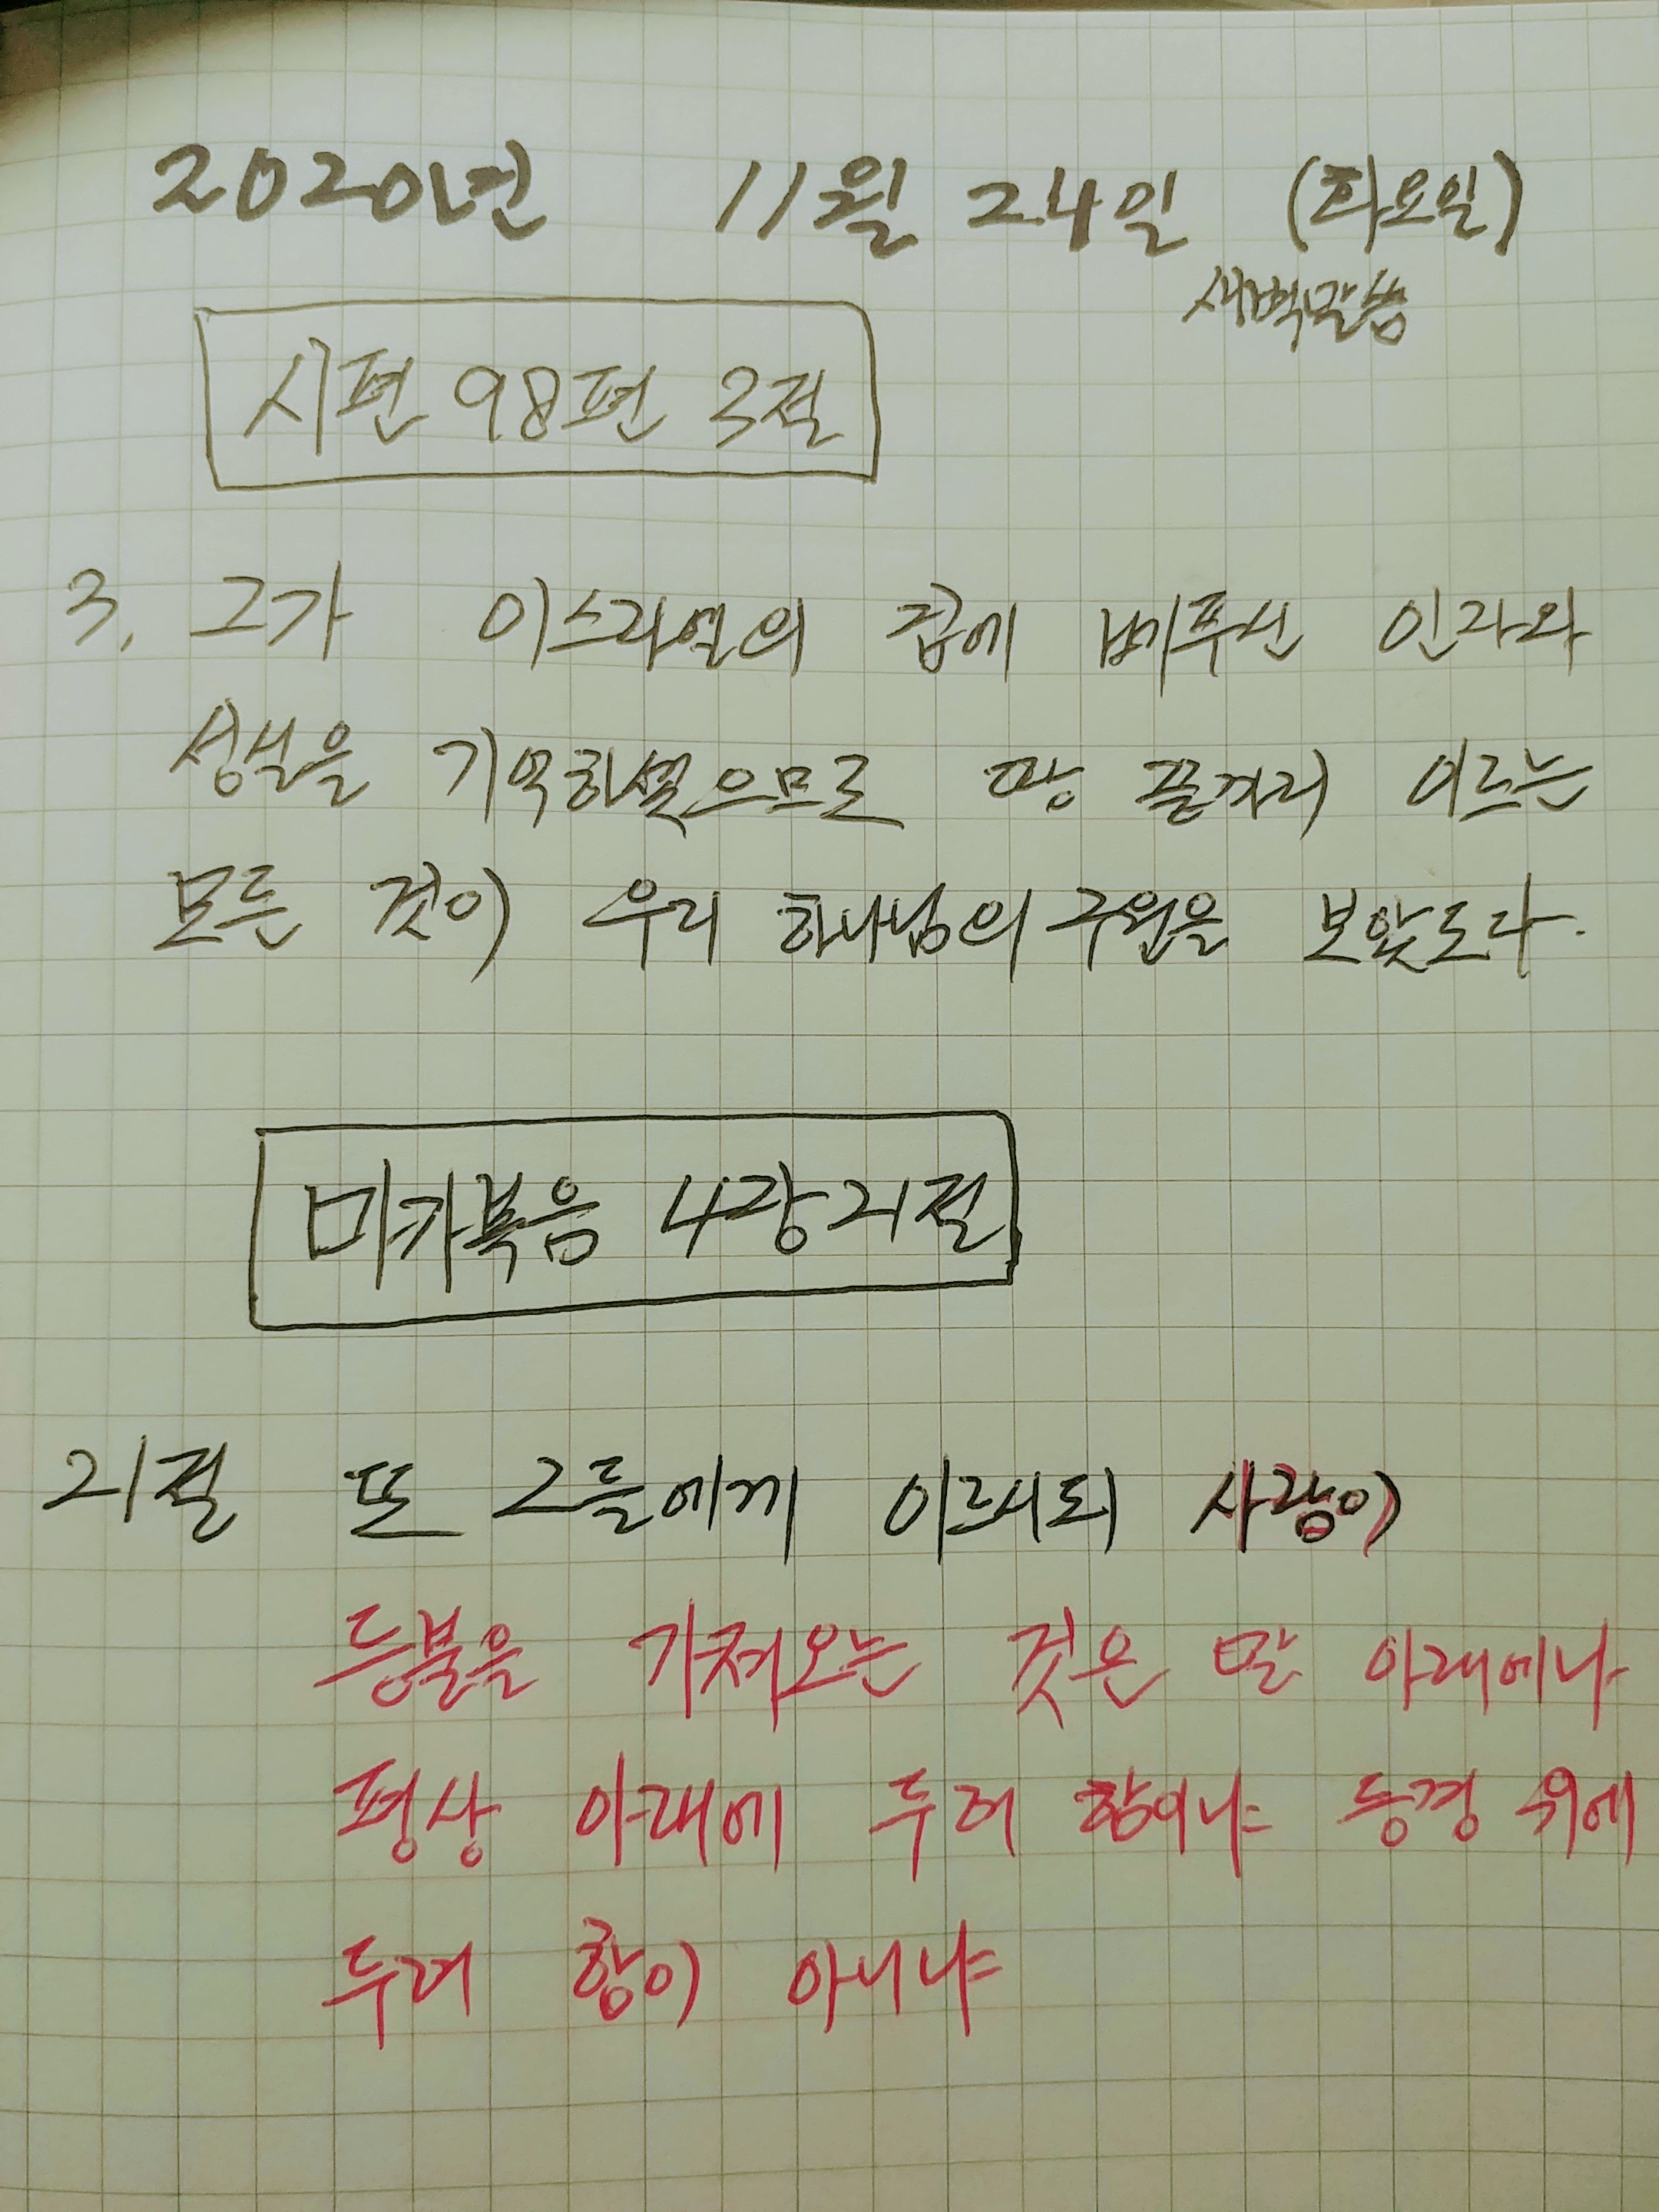 2020년 11월 24일 (화요일)
새벽말씀
시편 98편 3절
3. 그가 이스라엘의 집에 베푸신 인자와
성실을 기억하셨으므로 땅 끝까지 이르는
모든 것이 우리 하나님의 구원을 보았도다.
마가복음 4장 21절
21절 또 그들에게 이르시되 사람이
등불을 가져오는 것은 말 아래에나
평상 아래에 두려 함이냐 등경 위에
두려 함이 아니냐